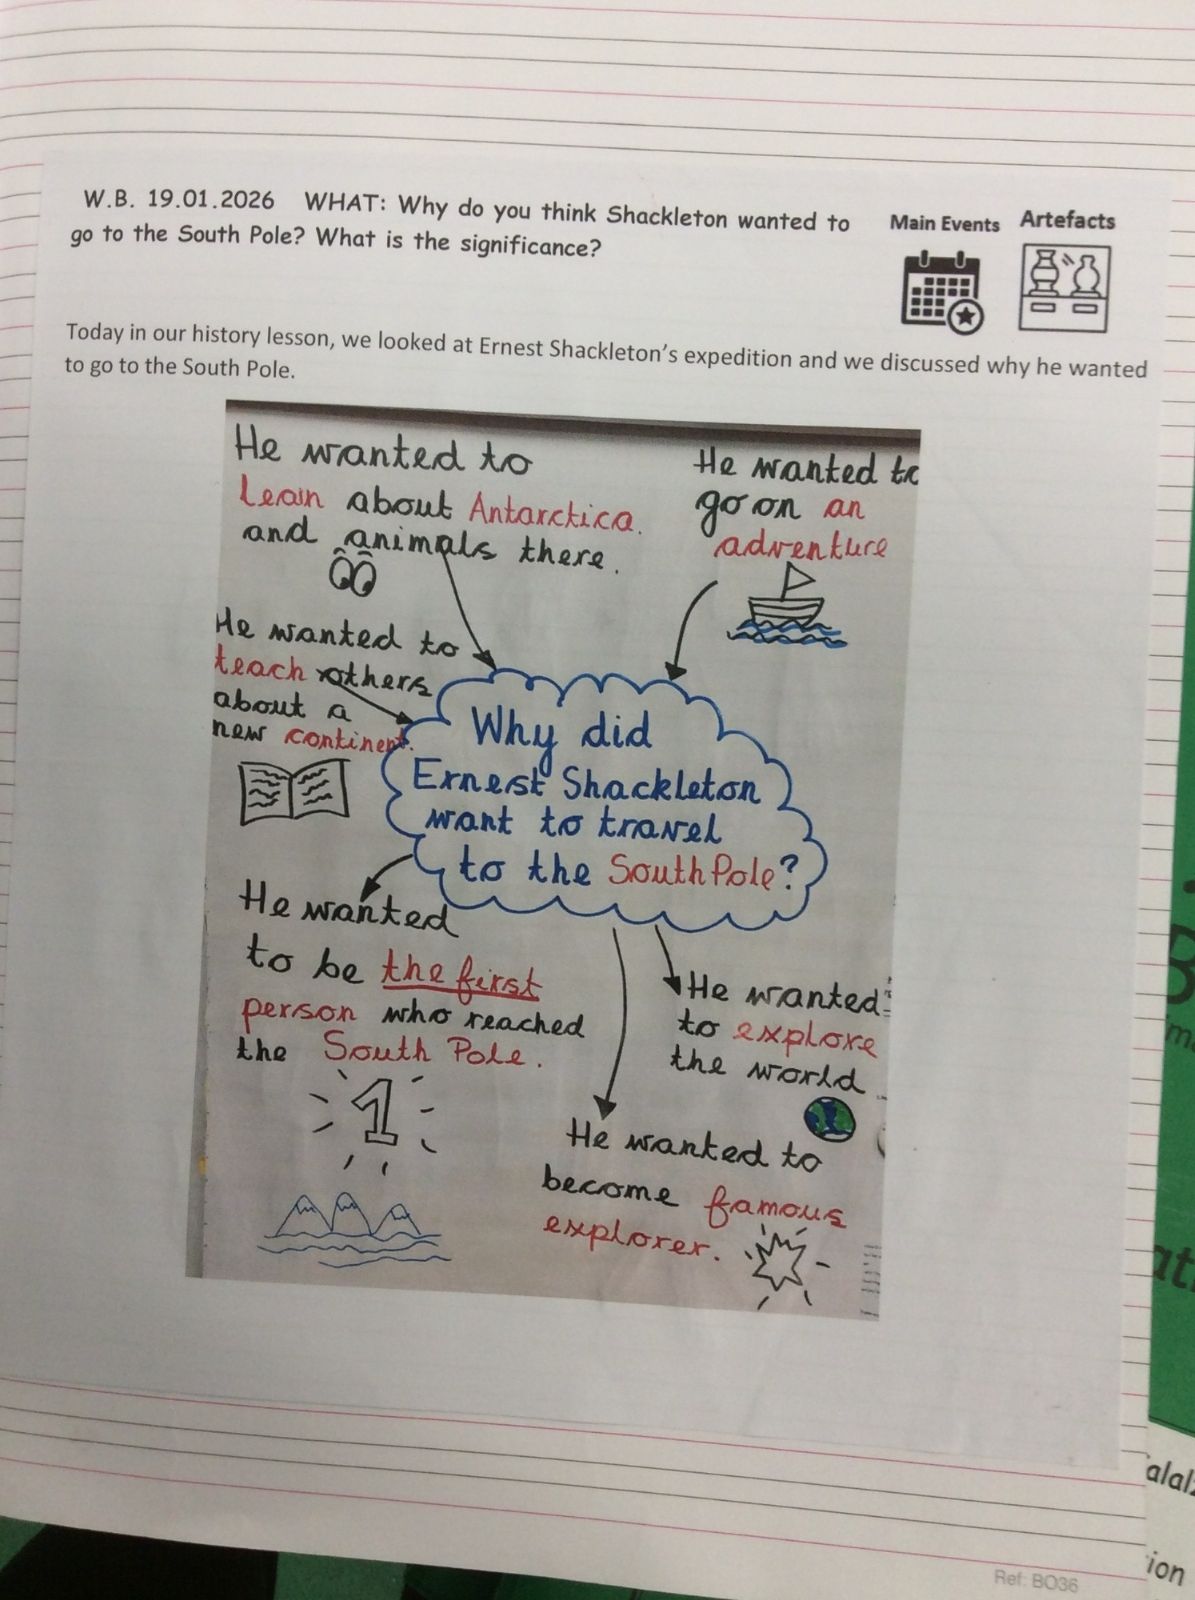 W.B. 19.01.2026 WHAT: Why do you think Shackleton wanted to
go to the South Pole? What is the significance?
Main Events
Artefacts
Today in our history lesson, we looked at Ernest Shackleton's expedition and we discussed why he wanted
to go to the South Pole.
He wanted to
learn about Antarctica.
and animals there.
He wanted to
go on an
adventure
He wanted to
teach others
about a
new continent.
Why did
Ernest Shackleton
want to travel
to the South Pole?
He wanted
to be the first
person who reached
the South Pole.
1
He wanted
to explore
the world
He wanted to
become famous
explorer.
Ref: BO36